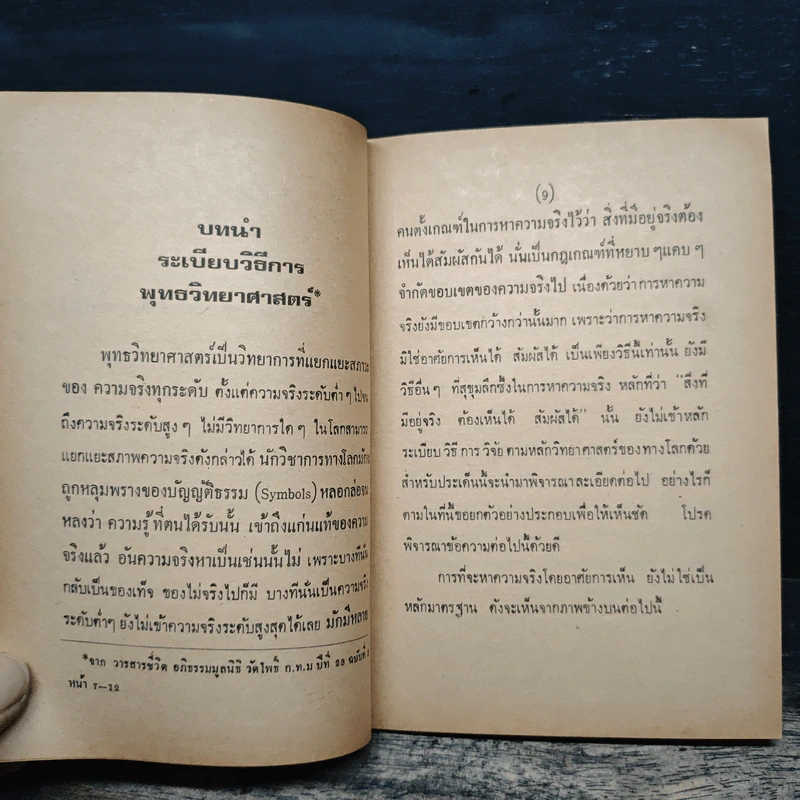 บทนำ
ระเบียบวิธีการ
พุทธวิทยาศาสตร์*
พุทธวิทยาศาสตร์เป็นวิทยาการที่แยกแยะสภาวะ
ของ ความจริงทุกระดับ ตั้งแต่ความจริงระดับต่ำ ๆ ไปจน
ถึงความจริงระดับสูง ๆ ไม่มีวิทยาการใด ๆ ในโลกสามารถ
แยกแยะสภาพความจริงดังกล่าวได้ นักวิชาการทางโลกมักจะ
ถูกหลุมพรางของบัญญัติธรรม (Symbols) หลอกล่อจน
หลงว่า ความรู้ที่ตนได้รับนั้น เข้าถึงแก่นแท้ของความ
จริงแล้ว อันความจริงหาเป็นเช่นนั้นไม่ เพราะบางทีนั้น
กลับเป็นของเท็จ ของไม่จริงไปก็มี บางทีนั่นเป็นความจริง
ระดับต่ำๆ ยังไม่เข้าความจริงระดับสูงสุดได้เลย มักมีหลาย
*จาก วารสารชีวิต อภิธรรมมูลนิธิ วัดโพธิ์ ก.ท.ม ปีที่ 28 ฉบับที่
หน้า 7—12
(9)
คนตั้งเกณฑ์ในการหาความจริงไว้ว่า สิ่งที่มีอยู่จริงต้อง
เห็นได้สัมผัสกันได้ นั่นเป็นกฎเกณฑ์ที่หยาบ ๆแคบ ๆ
จำกัดขอบเขตของความจริงไป เนื่องด้วยว่าการหาความ
จริงยังมีขอบเขตกว้างกว่านั้นมาก เพราะว่าการหาความจริง
มิใช่อาศัยการเห็นได้ สัมผัสได้ เป็นเพียงวิธีนี้เท่านั้น ยังมี
วิธีอื่นๆ ที่สุขุมลึกซึ้งในการหาความจริง หลักที่ว่า “สิ่งที่
มีอยู่จริง ต้องเห็นได้ สัมผัสได้” นั้น ยังไม่เข้าหลัก
ระเบียบ วิธี การ วิจัย ตามหลักวิทยาศาสตร์ของทางโลกด้วย
สำหรับประเด็นนี้จะนำมาพิจารณาละเอียดต่อไป อย่างไรก็
ตามในที่นี้ขอยกตัวอย่างประกอบเพื่อให้เห็นชัด โปรด
พิจารณาข้อความต่อไปนี้ด้วยดี
การที่จะหาความจริงโดยอาศัยการเห็น ยังไม่ใช่เป็น
หลักมาตรฐาน ดังจะเห็นจากภาพข้างบนต่อไปนี้